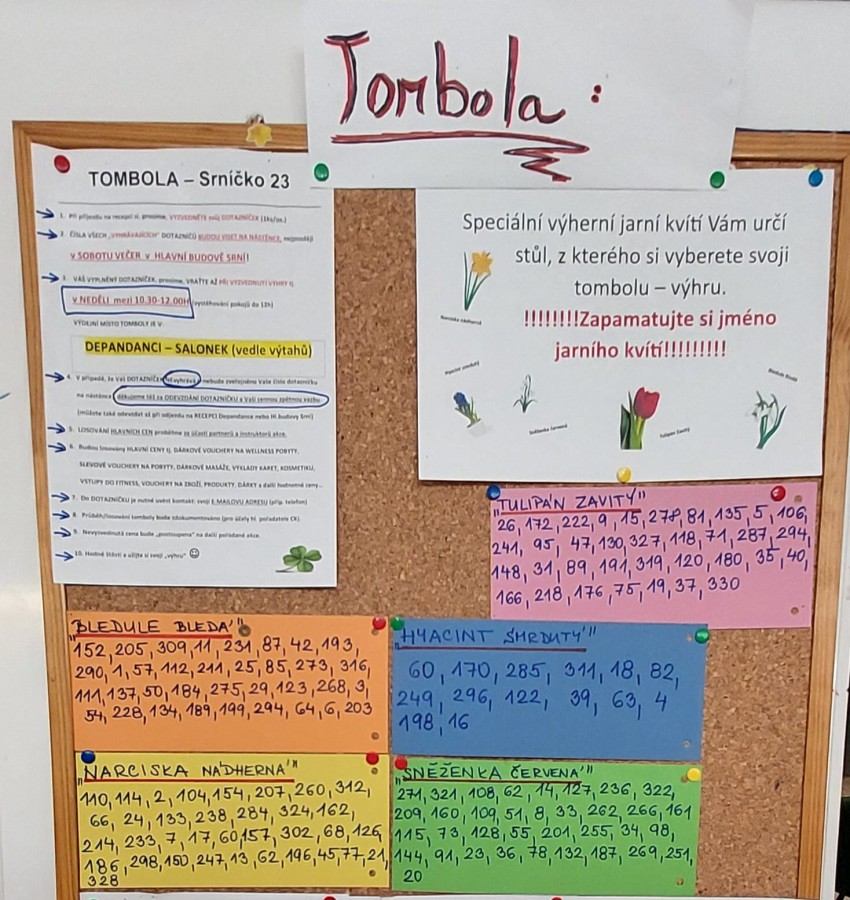 Tombola:
TOMBOLA – Srníčko 23
1. Při příjezdu na recepci si, prosíme, VYZVEDNĚTE svůj DOTAZNÍČEK (1ks/os.)
2. ČÍSLA VŠECH „VYHRÁVAJÍCÍCH" DOTAZNÍČŮ BUDOU VISET NA NÁSTĚNCE, nejpozději
v SOBOTU VEČER v HLAVNÍ BUDOVĚ SRNÍ!
3. VÁŠ VYPLNĚNÝ DOTAZNÍČEK, prosíme, VRAŤTE AŽ PŘI VYZVEDNUTÍ VÝHRY tj.
v NEDĚLI mezi 10.30-12.00H (vystěhování pokojů do 12h)
VÝDEJNÍ MÍSTO TOMBOLY JE V:
DEPANDANCI – SALONEK (vedle výtahů)
4. V případě, že Váš DOTAZNÍČEK nevyhrává, nebude zveřejněno Vaše číslo dotazníčku
na nástěnce, děkujeme též za ODEVZDÁNÍ DOTAZNÍČKU a Vaši cennou zpětnou vazbu
(můžete také odevzdat až při odjezdu na RECEPCI Depandance nebo Hl.budovy Srní)
5. LOSOVÁNÍ HLAVNÍCH CEN proběhne za účasti partnerů a instruktorů akce.
6. Budou losovány HLAVNÍ CENY tj. DÁRKOVÉ VOUCHERY NA WELLNESS POBYTY,
SLEVOVÉ VOUCHERY NA POBYTY, DÁRKOVÉ MASÁŽE, VÝKLADY KARET, KOSMETIKU,
VSTUPY DO FITNESS, VOUCHERY NA ZBOŽÍ, PRODUKTY, DÁRKY a další hodnotné ceny...
7. Do DOTAZNÍČKU je nutné uvést kontakt, svojí E.MAILOVU ADRESU (příp. telefon)
8. Průběh/losování tomboly bude zdokumentováno (pro účely hl. pořadatele CK).
9. Nevyzvednutá cena bude „postoupena" na další pořádané akce.
10. Hodně štěstí a užijte si svoji „výhru"
Speciální výherní jarní kvítí Vám určí
stůl, z kterého si vyberete svoji
tombolu – výhru.
!!!!!!!!Zapamatujte si jméno
jarního kvítí!!!!!!!!!
Narciska nádherná
Hyacint smrdutý
Sněženka červená
Tulipán Zavitý
Bledule Bledá
"TULIPÁN ZAVITÝ"
26, 172, 222, 9, 15, 278, 81, 135, 5, 106,
241, 95, 47, 130, 327, 118, 71, 287, 294,
148, 31, 89, 191, 319, 120, 180, 35, 40,
166, 218, 176, 75, 19, 37, 330
"BLEDULE BLEDÁ"
152, 205, 309, 11, 231, 87, 42, 193,
290, 1, 57, 112, 211, 25, 85, 273, 316,
111, 137, 50, 184, 275, 29, 123, 268, 3,
54, 228, 134, 189, 199, 294, 64, 6, 203
"HYACINT SMRDUTÝ"
60, 170, 285, 311, 18, 82,
249, 296, 122, 39, 63, 4
198, 16
"NARCISKA NÁDHERNÁ"
110, 114, 2, 104, 154, 207, 260, 312,
66, 24, 133, 238, 284, 324, 162,
214, 233, 7, 17, 60, 157, 302, 68, 126,
186, 298, 150, 247, 13, 62, 196, 45, 77, 21,
328
"SNĚŽENKA ČERVENÁ"
271, 321, 108, 62, 14, 127, 236, 322,
209, 160, 109, 51, 8, 33, 262, 266, 161
115, 73, 128, 55, 201, 255, 34, 98,
144, 91, 23, 36, 78, 132, 187, 269, 251,
20